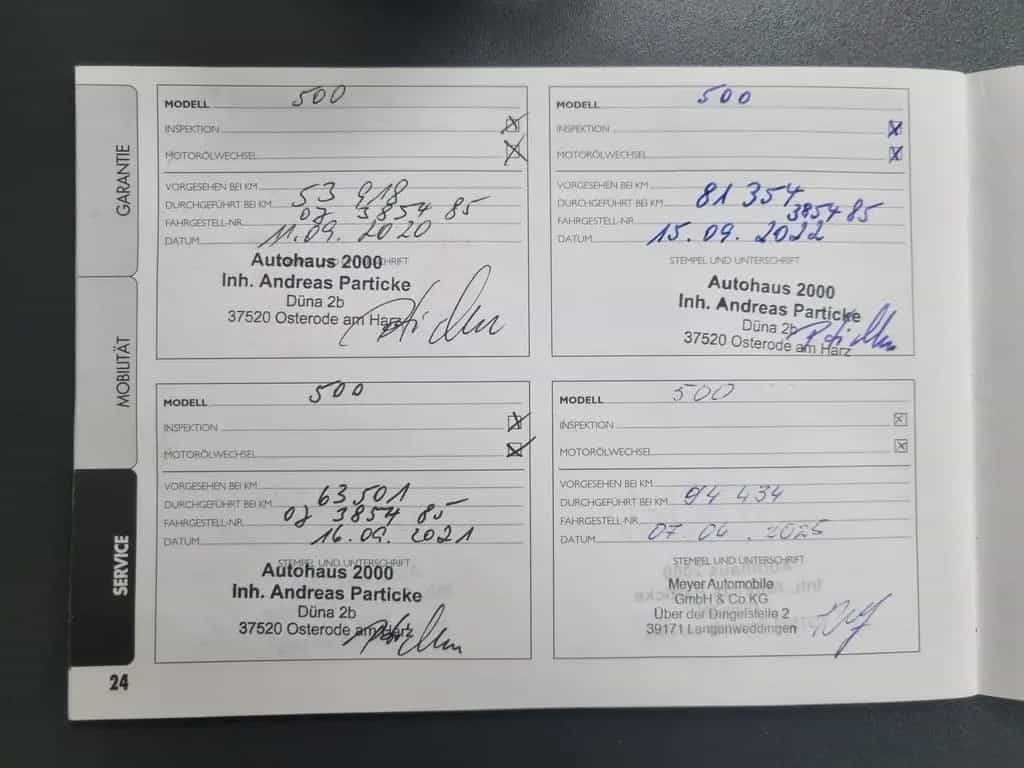 GARANTIE
MOBILITÄT
SERVICE
MODELL 500
INSPEKTION
MOTORÖLWECHSEL
VORGESEHEN BEI KM
DURCHGEFÜHRT BEI KM 53 918
FAHRGESTELL-NR. 07 3854 85
DATUM 11.09. 2020
STEMPEL UND UNTERSCHRIFT
Autohaus 2000
Inh. Andreas Particke
Düna 2b
37520 Osterode am Harz
MODELL 500
INSPEKTION
MOTORÖLWECHSEL
VORGESEHEN BEI KM
DURCHGEFÜHRT BEI KM 81 354
FAHRGESTELL-NR. 385485
DATUM 15.09. 2022
STEMPEL UND UNTERSCHRIFT
Autohaus 2000
Inh. Andreas Particke
Düna 2b
37520 Osterode am Harz
MODELL 500
INSPEKTION
MOTORÖLWECHSEL
VORGESEHEN BEI KM
DURCHGEFÜHRT BEI KM 63501
FAHRGESTELL-NR. 07 3854 85
DATUM 16.09. 2021
STEMPEL UND UNTERSCHRIFT
Autohaus 2000
Inh. Andreas Particke
Düna 2b
37520 Osterode am Harz
MODELL 500
INSPEKTION
MOTORÖLWECHSEL
VORGESEHEN BEI KM
DURCHGEFÜHRT BEI KM 94 434
FAHRGESTELL-NR.
DATUM 07. 04. 2025
STEMPEL UND UNTERSCHRIFT
Meyer Automobile
GmbH & Co.KG
Über der Dingelstelle 2
39171 Langenweddingen
24